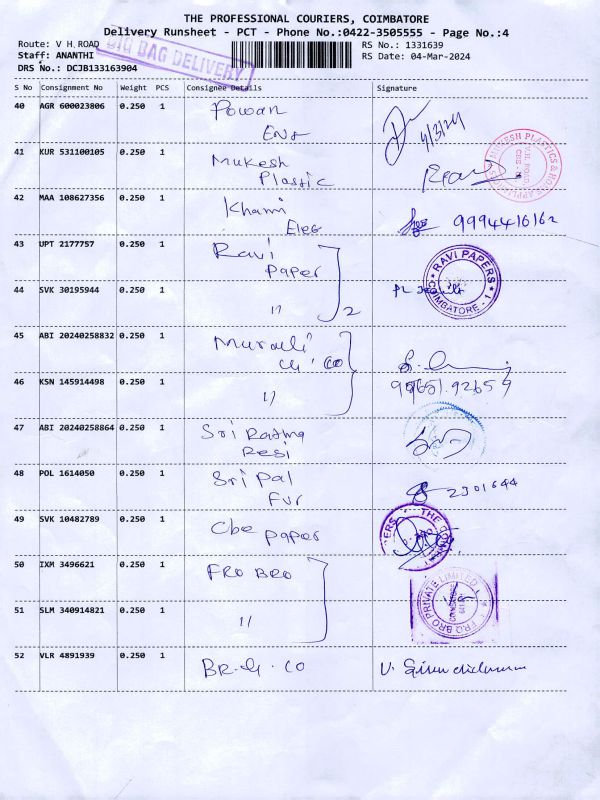 THE PROFESSIONAL COURIERS, COIMBATORE
Delivery Runsheet - PCT - Phone No.:0422-3505555 - Page No.:4
Route: V H ROAD
BIG BAG DELIVERY
RS No.: 1331639
Staff: ANANTHI
RS Date: 04-Mar-2024
DRS No.: DCJB133163904
S No Consignment No Weight PCS Consignee Details Signature
40 AGR 600023806 0.250 1 Powan
Eng 4/3/24
41 KUR 531100105 0.250 1 Mukesh
Plastic
MUKESH PLASTICS & HOME APPLIANCES
V.H. ROAD
CBE - 1
42 MAA 108627356 0.250 1 Khami
Elec 9994416162
43 UPT 2177757 0.250 1 Ravi
Paper
RAVI PAPERS
COIMBATORE - 1
44 SVK 30195944 0.250 1 11 2
45 ABI 20240258832 0.250 1 Murali
& CO
46 KSN 145914498 0.250 1 11 99651.92659
47 ABI 20240258864 0.250 1 Sri Rathna
48 POL 1614050 0.250 1 Sri Pal
Fur 2301644
49 SVK 10482789 0.250 1 Cbe paper
50 IXM 3496621 0.250 1 FRO BRO
FRO BRO PRIVATE LIMITED
51 SLM 340914821 0.250 1 11
52 VLR 4891939 0.250 1 BR.G.CO